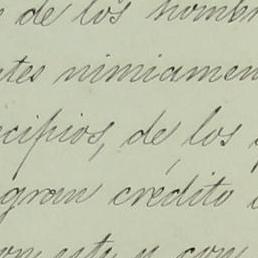 de los nombr
tes nimiamen
cipios, de los
gran crédito
y con